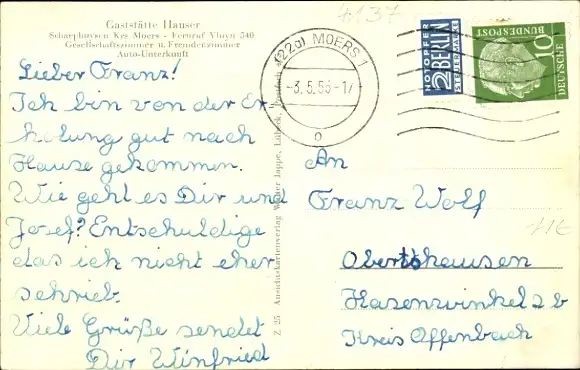 Gaststätte Hauser
Schaephuysen Krs Moers - Fernruf Vluyn 540
Gesellschaftszimmer u. Fremdenzimmer
Auto-Unterkunft
Lieber Franz!
Ich bin von der Er
holung gut nach
Hause gekommen.
Wie geht es Dir und
Josef? Entschuldige
das ich nicht eher
schrieb.
Viele Grüße sendet
Dir Winfried
Z 25 Ansichtskartenverlag Walter Jappe, Lübeck,
4137
(22a) MOERS 1
-3.5.56-17
o
NOTOPFER
2 BERLIN
STEUERMARKE
10
DEUTSCHE
BUNDESPOST
An
Franz Wolf
Obertshausen
Hasenwinkel 2 b
Kreis Offenbach